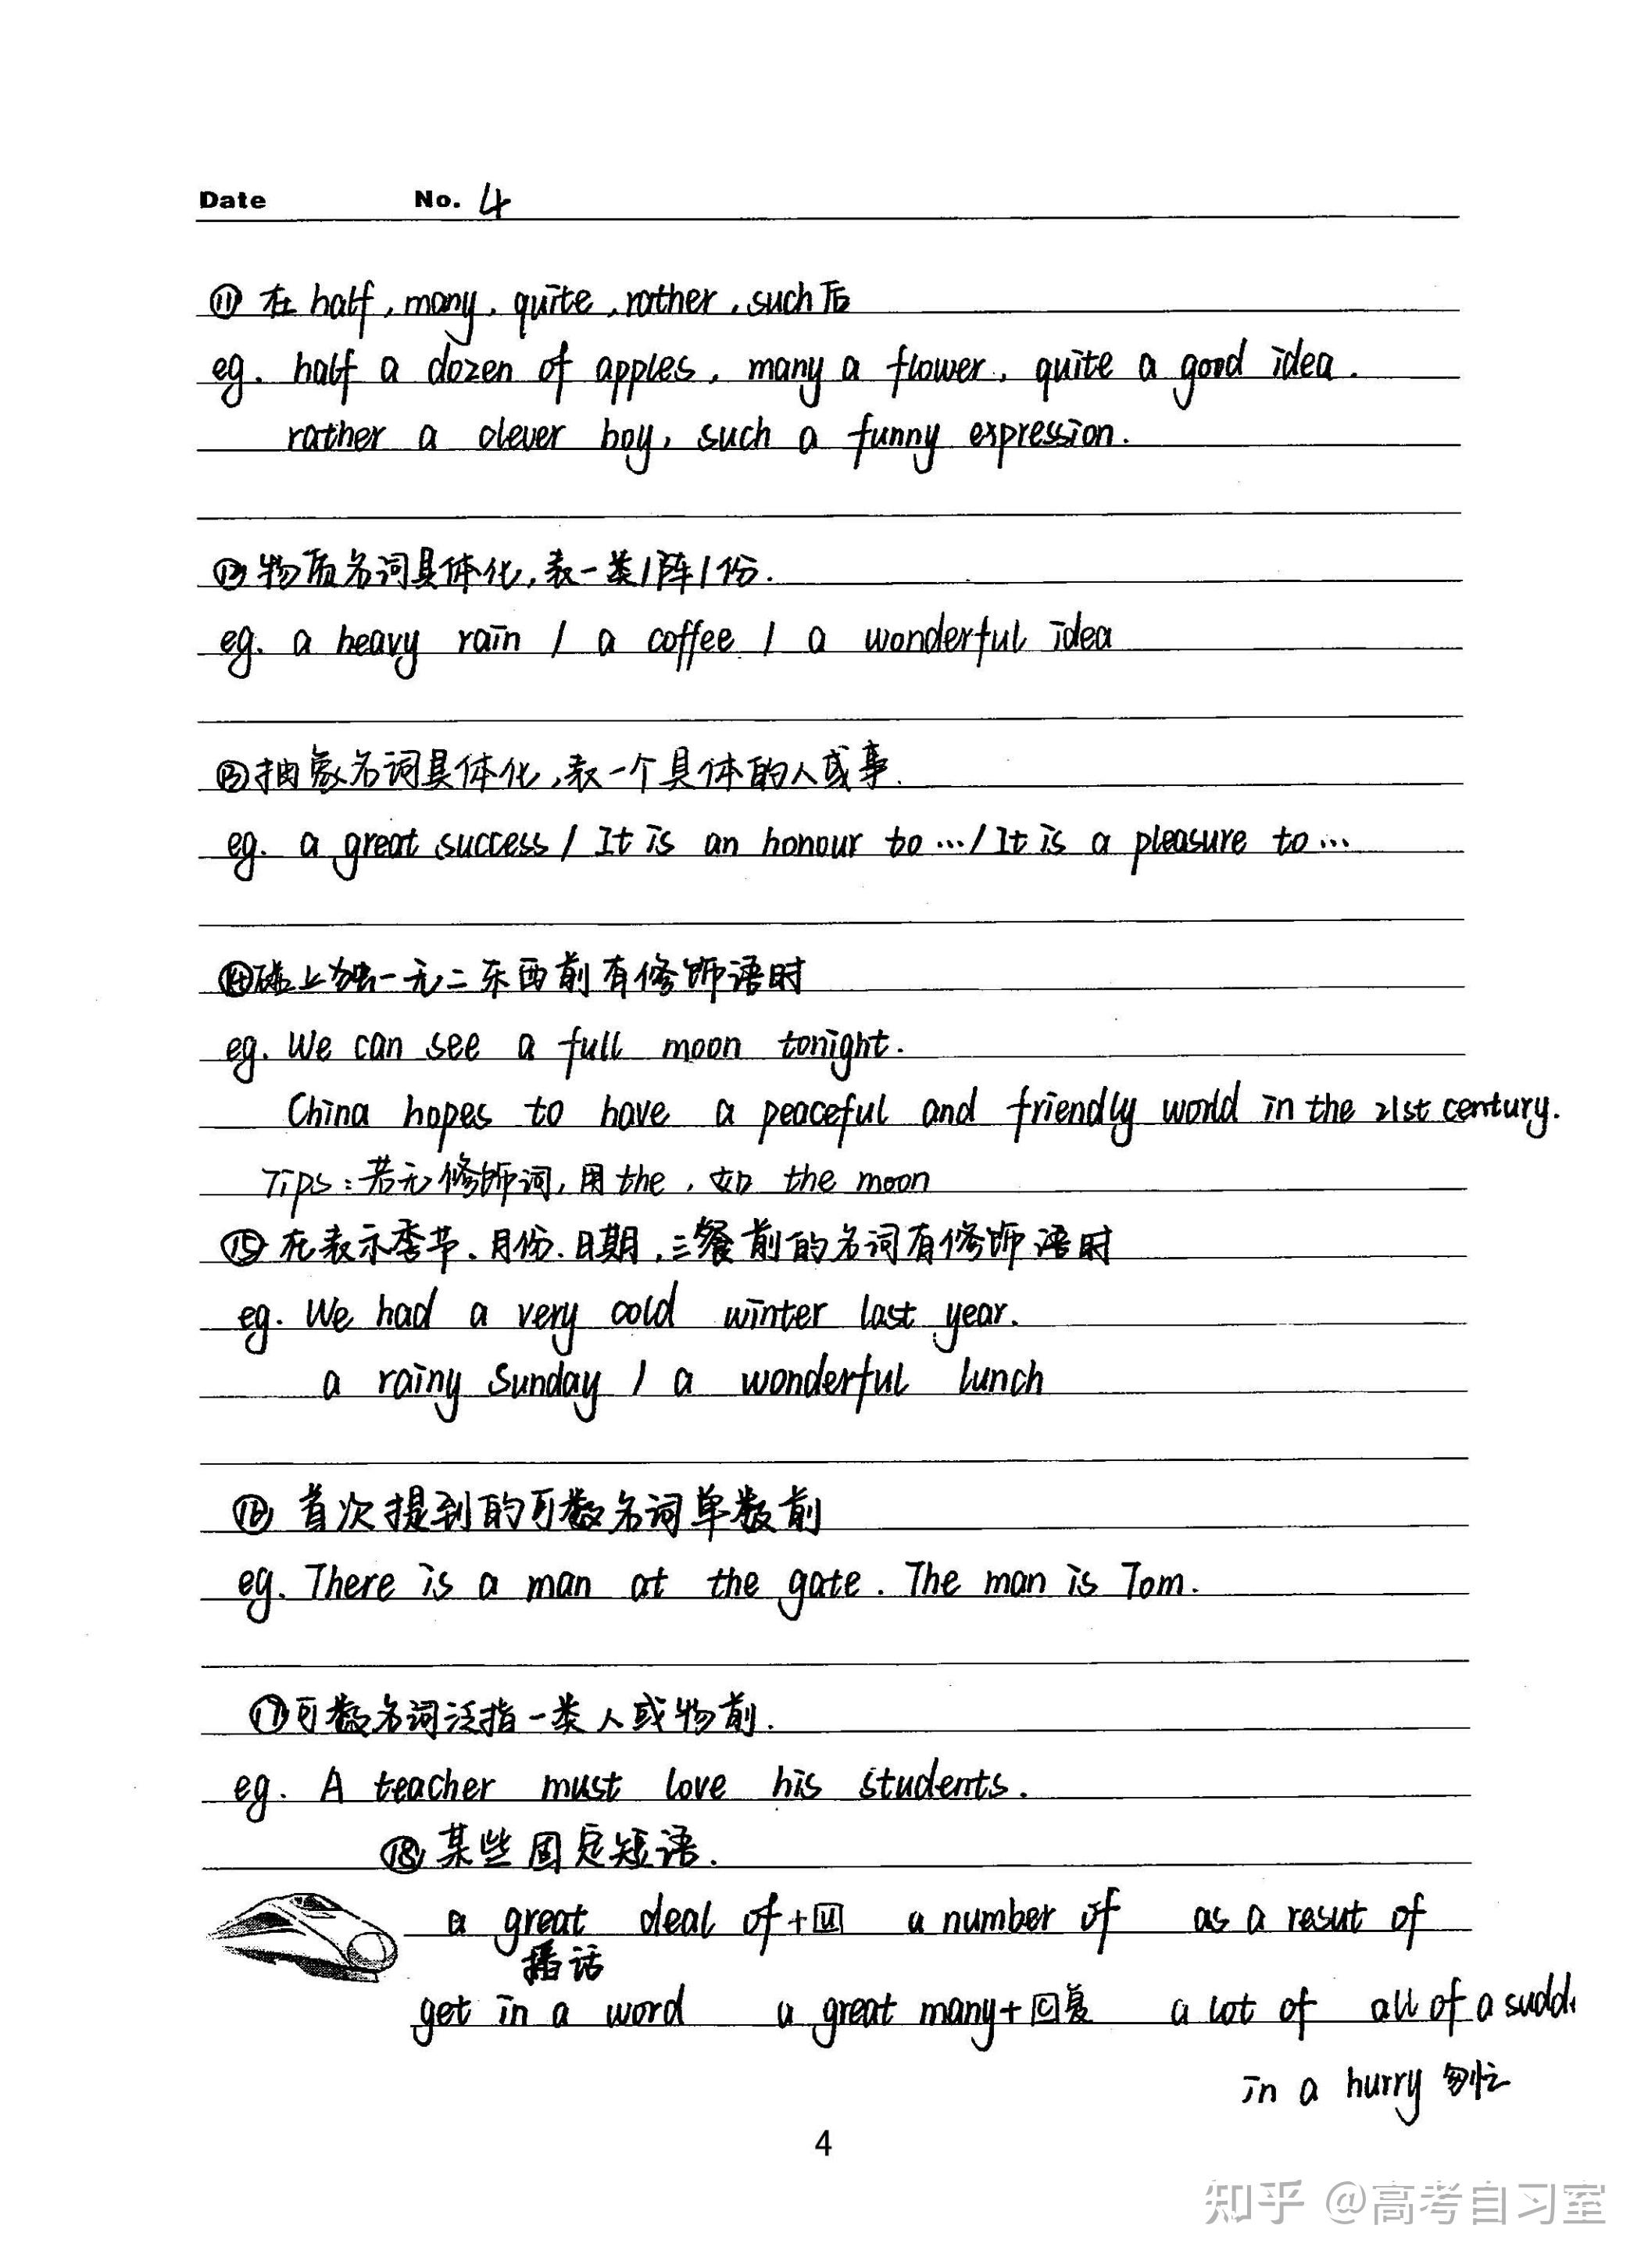 Date No. 4
⑪ 在 half, many, quite, rather, such 后
eg. half a dozen of apples, many a flower, quite a good idea.
rather a clever boy, such a funny expression.
⑫ 物质名词具体化,表一类/阵/份.
eg. a heavy rain / a coffee / a wonderful idea
⑬ 抽象名词具体化,表一个具体的人或事.
eg. a great success / It is an honour to … / It is a pleasure to …
⑭ 上独一无二东西前有修饰语时
eg. We can see a full moon tonight.
China hopes to have a peaceful and friendly world in the 21st century.
Tips:若无修饰词,用the,如 the moon
⑮ 在表示季节.月份.日期,三餐前的名词有修饰语时
eg. We had a very cold winter last year.
a rainy Sunday / a wonderful lunch
⑯ 首次提到的可数名词单数前
eg. There is a man at the gate. The man is Tom.
⑰ 可数名词泛指一类人或物前.
eg. A teacher must love his students.
⑱ 某些固定短语.
a great deal of + U a number of as a resut of
播话
get in a word a great many + C复 a lot of all of a sudd
in a hurry 匆忙
4
知乎 @高考自习室